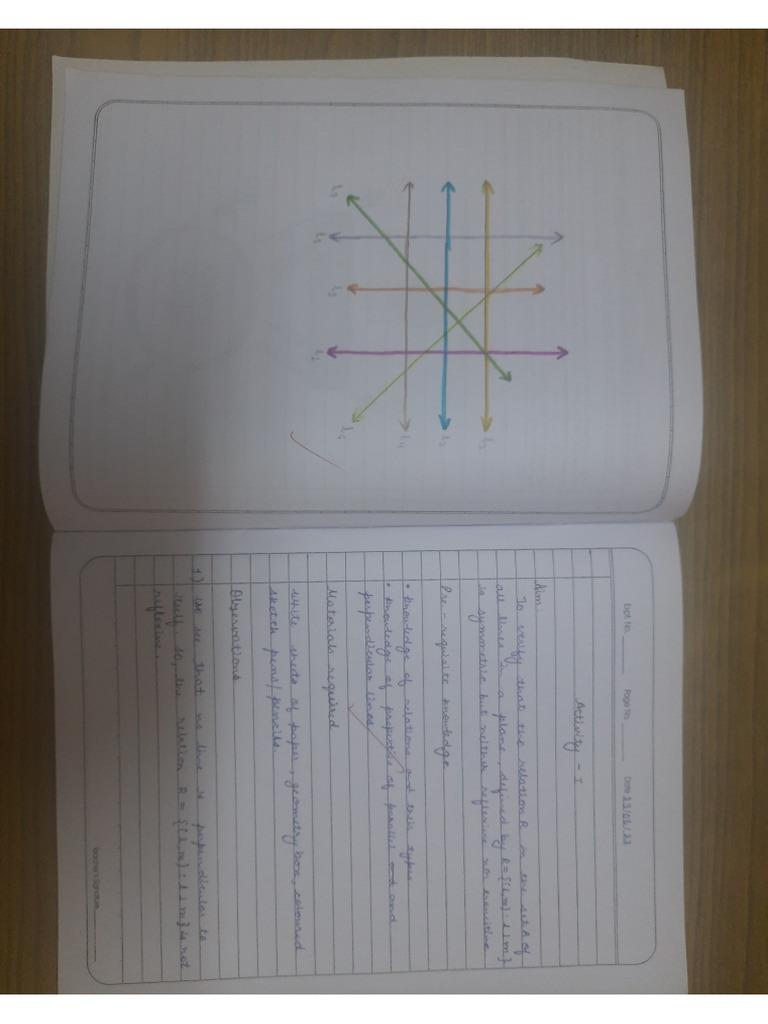 Expt No.
Page No.
Date 23/06/23
Activity - I
Aim:
To verify that the relation R in the set A of
all lines in a plane, defined by R = {(l,m) : l ⊥ m}
is symmetric but neither reflexive nor transitive.
Pre-requisite knowledge
• knowledge of relations and their types
• knowledge of properties of parallel and and
perpendicular lines
Materials required
white sheets of paper, geometry box, coloured
sketch pens/pencils.
Observations
1) We see that no line is perpendicular to
itself. so, the relation R = {(l,m) : l ⊥ m} is not
reflexive.
Teacher's Signature